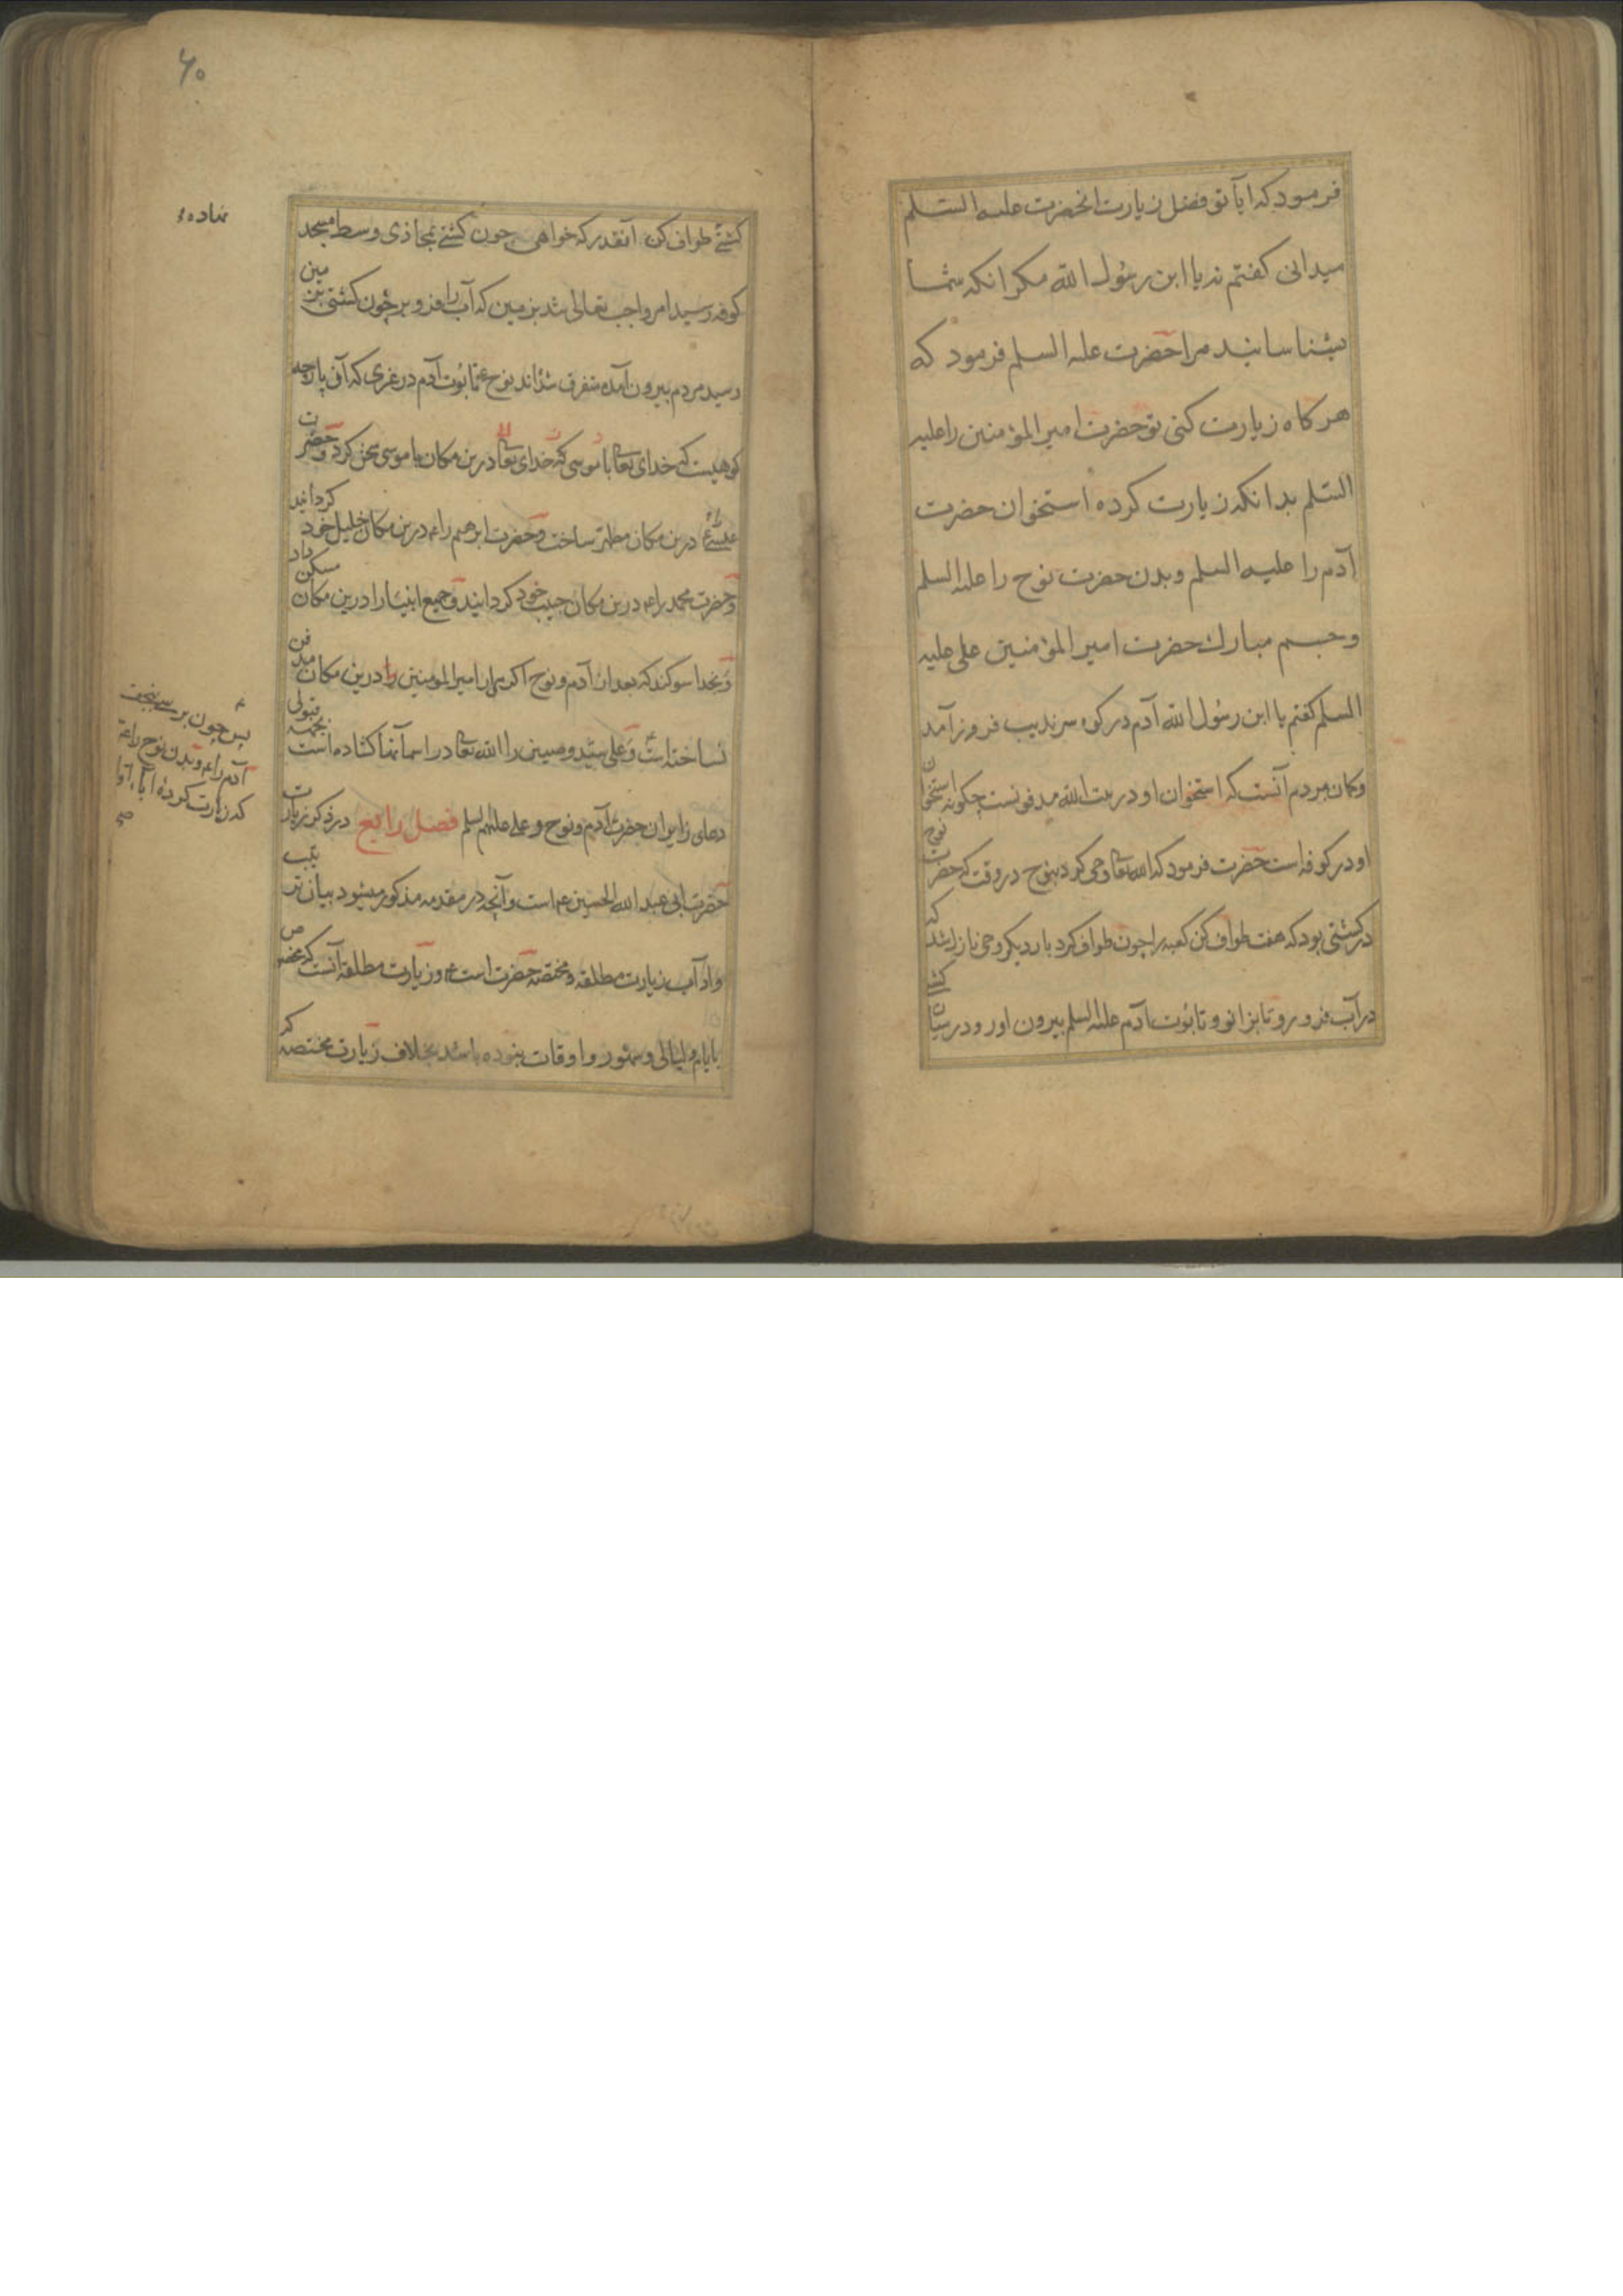 فرمود که ایا تو فضل زیارت انحضرت علیه السلم
میدانی کفتم نه یا ابن رسول الله مکر انکه شما
بشناسانید مرا حضرت علیه السلم فرمود که
هر کاه زیارت کنی تو حضرت امیر المؤمنین را علیه
السلم بدانکه زیارت کرده استخوان حضرت
آدم را علیه السلم و بدن حضرت نوح را علیه السلم
و جسم مبارک حضرت امیر المؤمنین علی علیه
السلم کفتم یا ابن رسول الله آدم در کوه سرندیب فروز آمد
و کمان مردم آنست که استخوان او در بیت الله مدفونست چکونه استخوان
او در کوفه است حضرت فرمود که الله تعا وحی کرد بنوح در وقت که حضرت نوح
در کشتی بود که هفت طواف کن کعبه را چون طواف کرد بار دیکر وحی نازل شد که
در آب فرو رو تا بزانو و تابوت آدم علیه السلم بیرون اور و در میان
۶۰
کشتی طواف کن آنقدر که خواهی چون کشتی بمحاذی وسط مسجد
کوفه رسید امر واجب تعالی شد بزمین که آب را فرو بر چون کشتی بزمین
رسید مردم بیرون آمده متفرق شدند نوح تابوت آدم در غری که آن پارچه
کوهیست که خدای تعا با موسی که خدای تعا درین مکان با موسی سخن کرد و حضرت
عیسی را درین مکان مطهر ساخت و حضرت ابرهیم را درین مکان خلیل خود کردانید
و حضرت محمد را درین مکان حبیب خود کردانید و جمیع انبیا را درین مکان مسکن داد
و بخدا سوکند که بعد از آدم و نوح اکرم از امیر المومنین را درین مکان مدفن
نساخته است و علی سید وصیین را الله تعا در اسمانها کشاده است بجهة قبولی
دعای زایران حضرت آدم و نوح و علی علیهم السلم فصل رابع در ذکر زیارت
حضرت ابی عبد الله الحسین است و آنچه در مقدمه مذکور میشود بیان ترتیب
و اداب زیارت مطلقه و مختصه حضرت است و زیارت مطلقه آنست که مخصوص
بایام و لیالی و شهور و اوقات نبوده باشد بخلاف زیارت مختصه که
نهاده
پس چون برسی بنجف
آدم را و بدن نوح را
که زیارت کرده آباء
صح